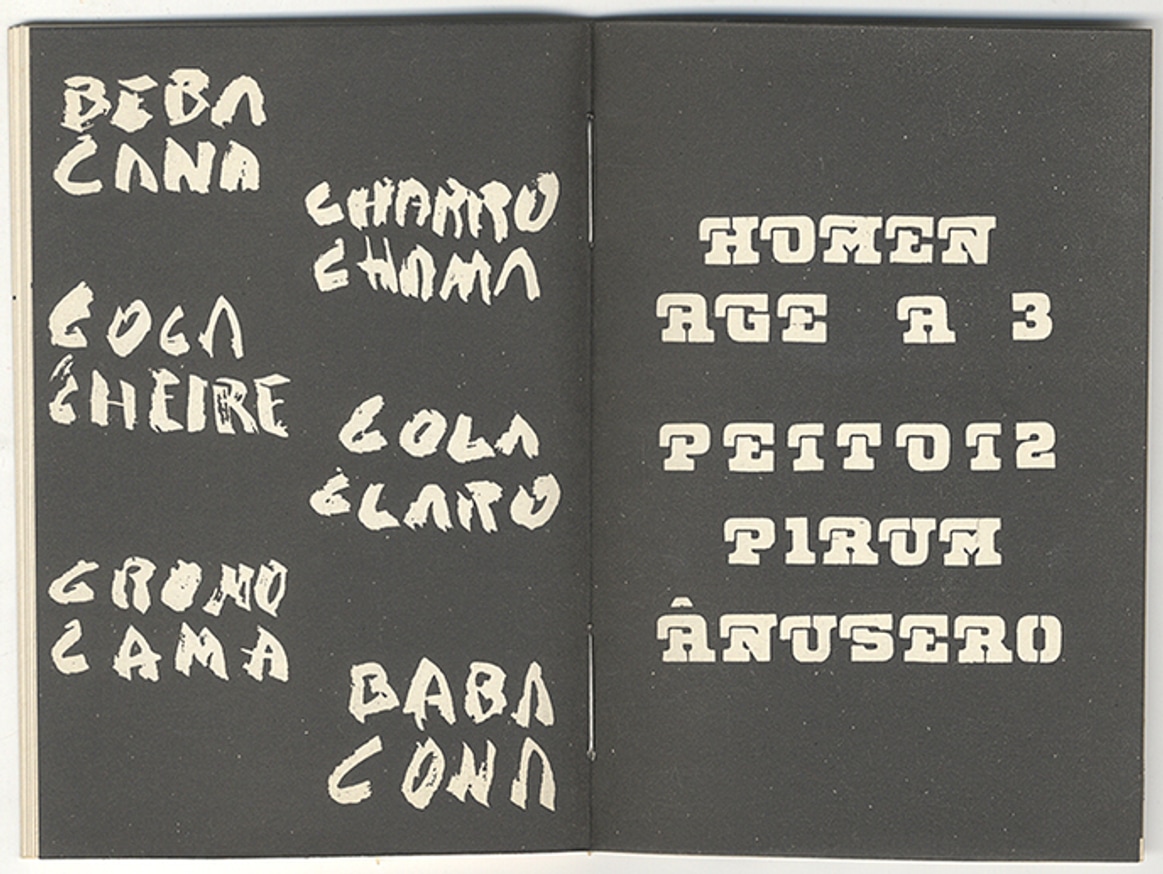 BEBA
CANA
CHARRO
CHAMA
COCA
CHEIRE
COLA
CLARO
CROMO
CAMA
BABA
CONA
HOMEN
AGE A 3
PE1TO12
P1RUM
ÂNUSERO